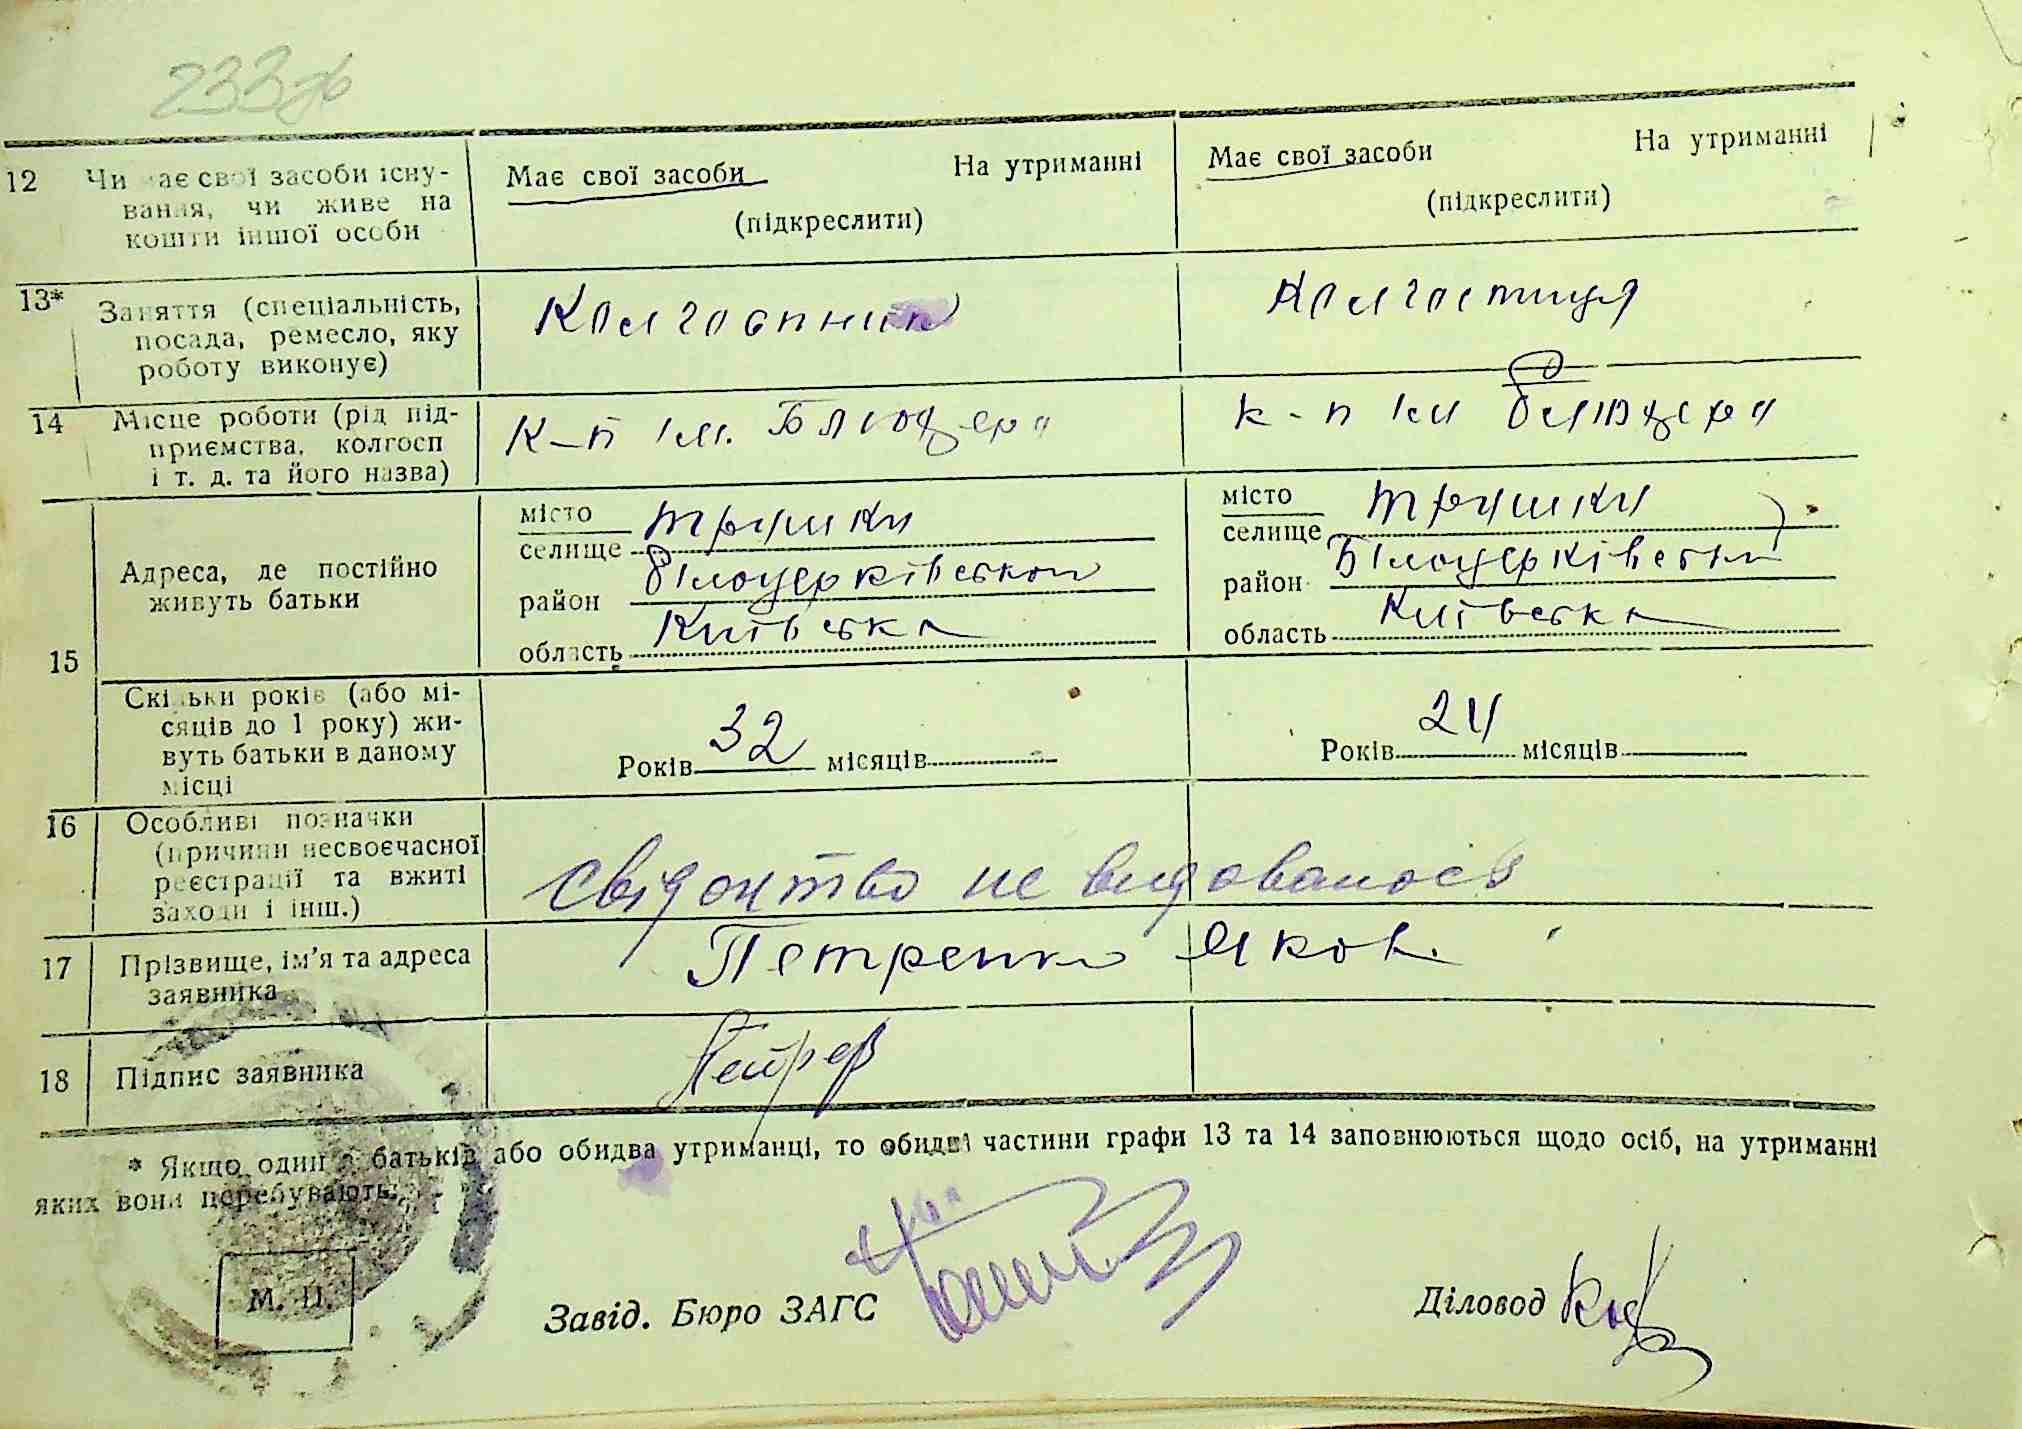 233
12 Чи має свої засоби існу-
вання, чи живе на
кошти іншої особи
Має свої засоби На утриманні
(підкреслити)
Має свої засоби На утриманні
(підкреслити)
13* Заняття (спеціальність,
посада, ремесло, яку
роботу виконує)
Колгоспник
Колгоспниця
14 Місце роботи (рід під-
приємства, колгосп
і т. д. та його назва)
К-п ім. Блюхера
к-п ім Блюхера
15
Адреса, де постійно
живуть батьки
місто
селище Трушки
район Білоцерківський
область Київська
місто
селище Трушки
район Білоцерківськи
область Київська
Скільки років (або мі-
сяців до 1 року) жи-
вуть батьки в даному
місці
Років 32 місяців
Років 24 місяців
16 Особливі позначки
(причини несвоєчасної
реєстрації та вжиті
заходи і інш.)
свідоцтво не видавалось
17 Прізвище, ім'я та адреса
заявника
Петренко Яков.
18 Підпис заявника
Петре
* Якщо один з батьків або обидва утриманці, то обидві частини графи 13 та 14 заповнюються щодо осіб, на утриманні
яких вони перебувають.
М. П.
Завід. Бюро ЗАГС
Діловод